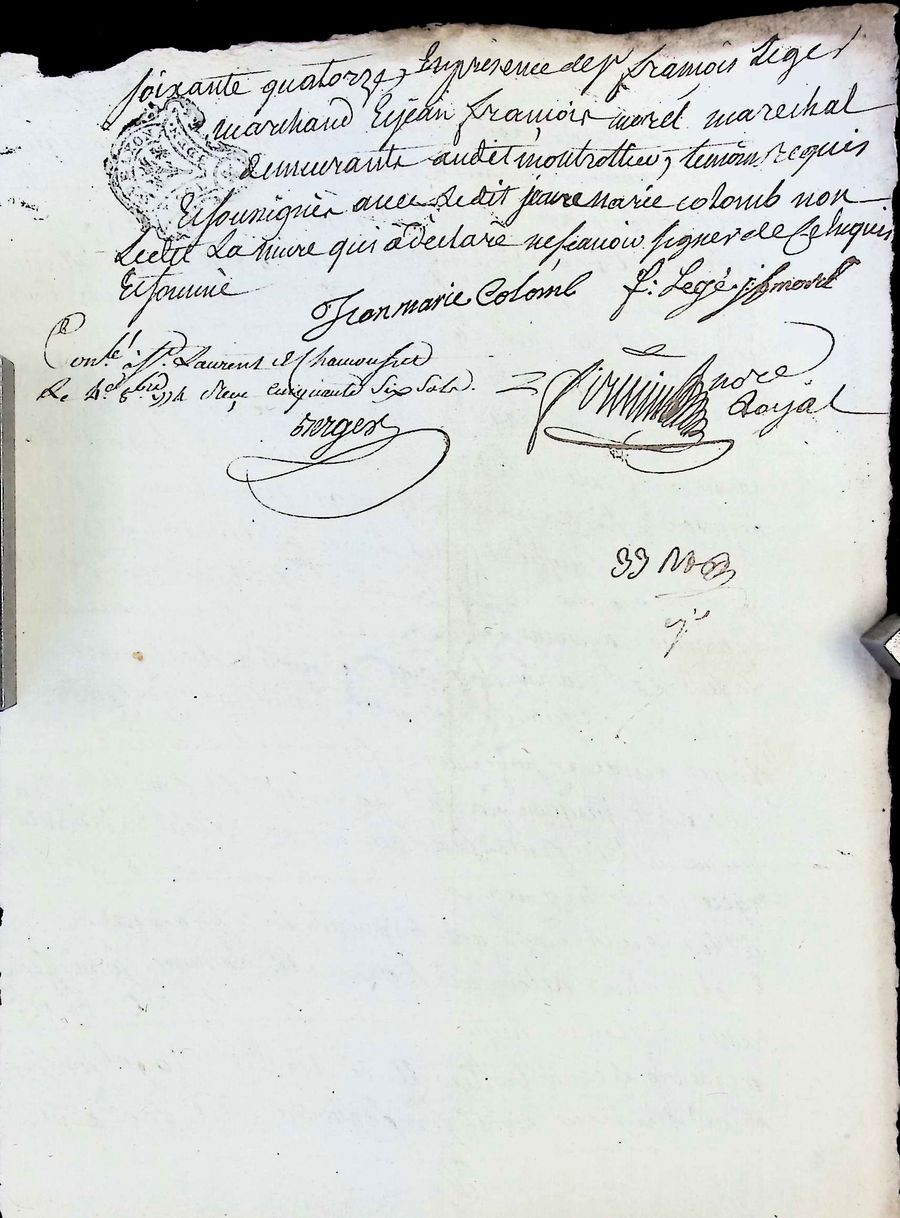 soixante quatorze, En presence de sr françois Leger
marchand Et jean françois morel marechal
demeurants audit montrottier, temoins requis
Et soussignés avec Ledit jean marie colomb non
Ledit La mure qui a declaré ne scavoir signer de ce Enquis
Et sommé
Jean marie Colomb f: Legé j: f morel
Contlé à St. Laurent de Chamousset
Le 4e 8bre 1774 Reçu cinquante six sols.
Berger
nore
Royal
33